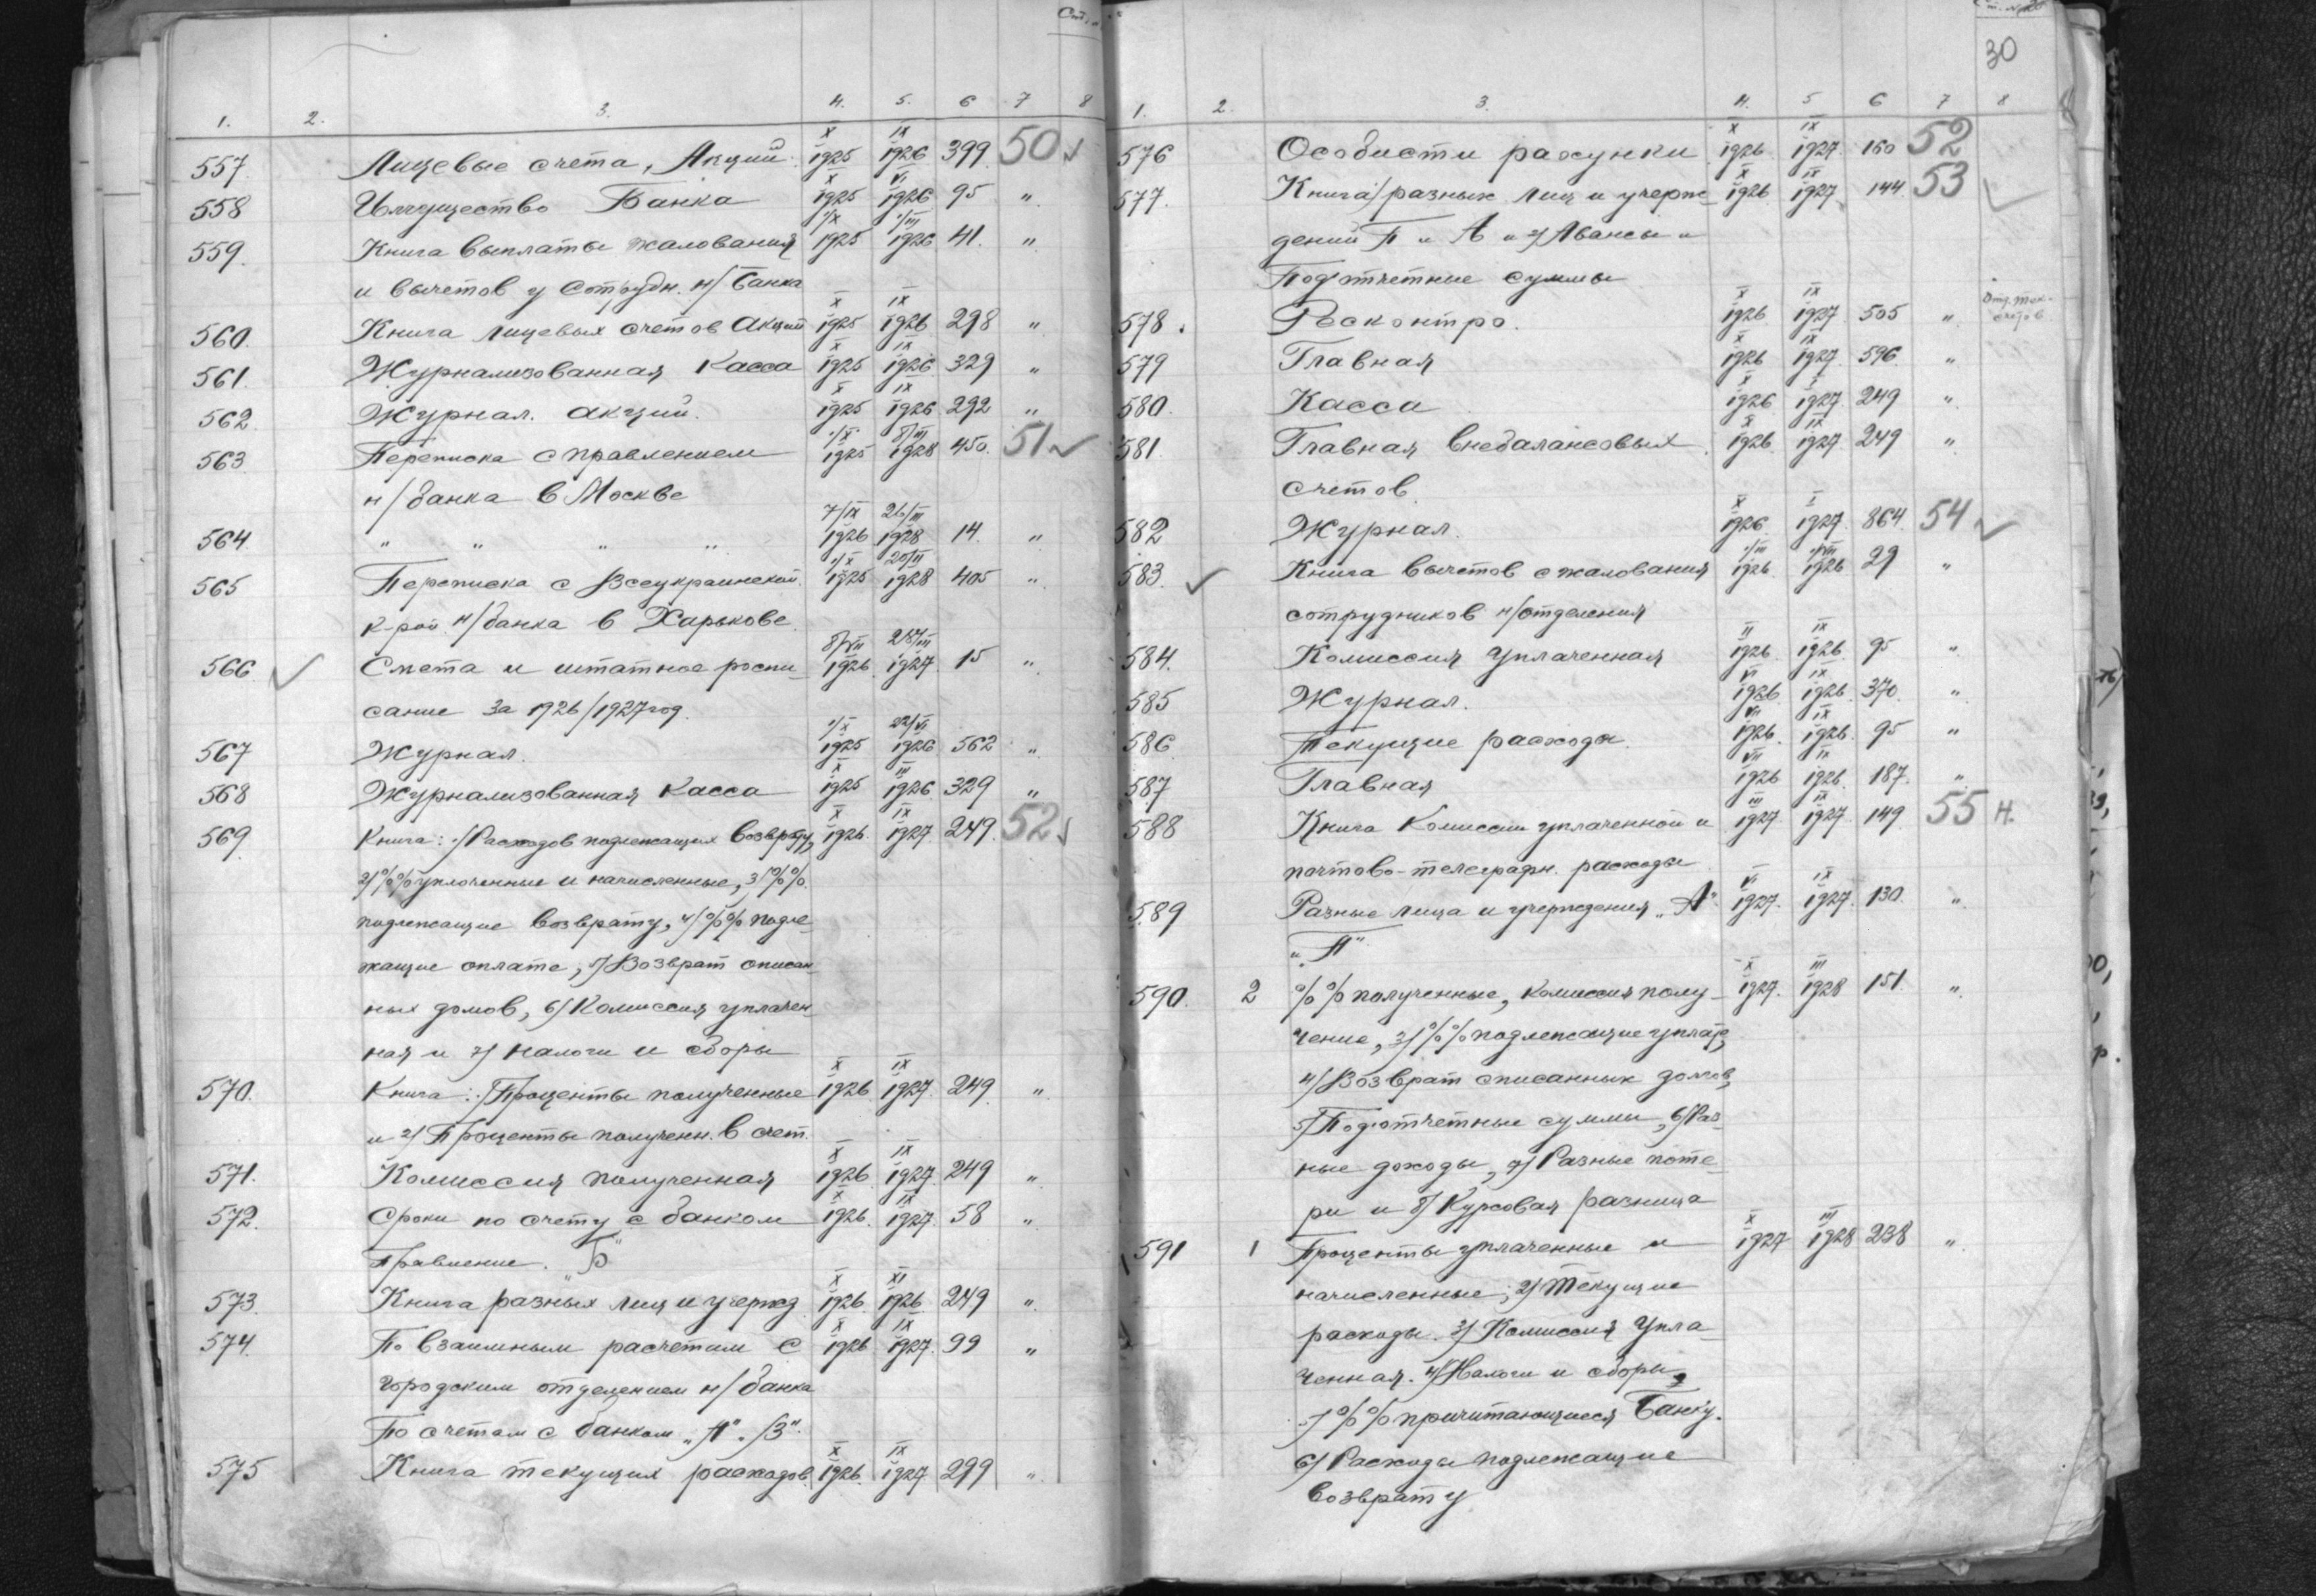 1. 2. 3. 4. 5. 6 7 8
X IX
557. Лицевые счета, Акций. 1925 1926 399. 50 ✓
X VI
558 Имущество Банка 1925 1926 95 "
1/X 1/III
559. Книга выплаты жалования 1925 1926 41. "
и вычетов у сотрудн. н/Банка
X IX
560. Книга лицевых счетов акций 1925 1926 298 "
X IX
561. Журнализованная касса 1925 1926 329 "
X IX
562 Журнал. акций. 1925 1926 292 "
1/X 8/III
563 Переписка с правлением 1925 1928 450. 51 ✓
н/банка в Москве
7/IX 26/III
564 " " " " 1926 1928 14. "
1/X 20/II
565 Переписка с Всеукраинской 1925 1928 405 "
к-рой н/банка в Харькове.
8/VII 28/III
566. ✓ Смета и штатное роспи- 1926. 1927. 15 "
сание за 1926/1927 год.
1/X 22/VI
567 Журнал. 1925 1926 562 "
X III
568 Журнализованная касса 1925 1926 329 "
X IX
569 Книга: 1/Расходов подлежащих возврату, 1926. 1927. 249. 52 ✓
2/%% уплоченные и начисленные, 3/%%
подлежащие возврату, 4/%% подле-
жащие оплате, 5/Возврат списан-
ных домов, 6/Комиссия уплачен-
ная и 7/ налоги и сборы
X IX
570. Книга: 1/Проценты полученные 1926 1927. 249. "
и 2/ Проценты полученн. в счет.
X IX
571. Комиссия полученная 1926 1927 249 "
X IX
572. Сроки по счету с банком 1926. 1927 58 "
Правление. „Б"
X XI
573. Книга разных лиц и учережд 1926. 1926 249 "
X IX
574. По взаимным расчетам с 1926 1927. 99 "
городским отделением н/банка
По счетам с банком „А".
X IX
575 Книга текущих расходов 1926. 1927 299 "
30
1. 2. 3. 4. 5 6 7 8
X IX
576 Особисти рахунки 1926. 1927. 160 52
X IX
577. Книга 1/разных лиц и учереж- 1926 1927. 144 53 ✓
дений П и А и 2/Авансы и
Подотчетные суммы
X IX
578. Росконтро. 1926 1927. 505 "
X IX
579 Главная 1926 1927. 596. "
X I
580. Касса 1926 1927. 249 "
X IX
581 Главная внебалансовых 1926 1927. 249 "
счетов.
X I
582 Журнал. 1926 1927 864. 54 ✓
583. ✓ Книга вычетов с жалования 1926. 1926 29 "
сотрудников н/отделения
II IX
584. Комиссия уплаченная 1926. 1926. 95 "
VI IX
585 Журнал. 1926. 1926. 370. "
VII IX
586 Текущие расходы. 1926. 1926. 95 "
VII IX
587 Главная 1926 1926. 187. "
III IX
588 Книга Комиссии уплаченной и 1927 1927. 149. 55 н.
почтово-телеграфн. расходы
VI IX
589 Разные лица и учереждения „А" 1927. 1927. 130. "
и „П"
X III
590. 2 %% полученные, комиссия полу- 1927. 1928 151. "
чение, 3/%% подлежащие уплате,
4/Возврат списанных долгов,
5/Подотчетные сумми, 6/Раз-
ные доходы, 7/ Разные поте-
ри и 8/ Курсовая разница
X III
591 1 Проценты уплаченные и 1927 1928 238 "
начисленные, 2/Текущие
расходы. 3/ Комиссия упла-
ченная. 4/Налоги и сборы,
5/%% причитающиеся Банку.
6/ Расходы подлежащие
возврату